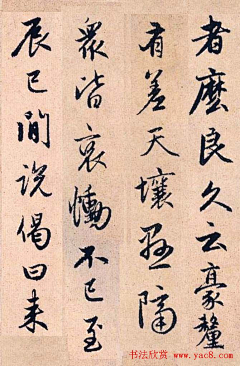 者麽良久云豪釐
有差天壤悬隔
衆皆哀慟不已至
辰巳間说偈曰来
书法欣赏
www.yac8.com